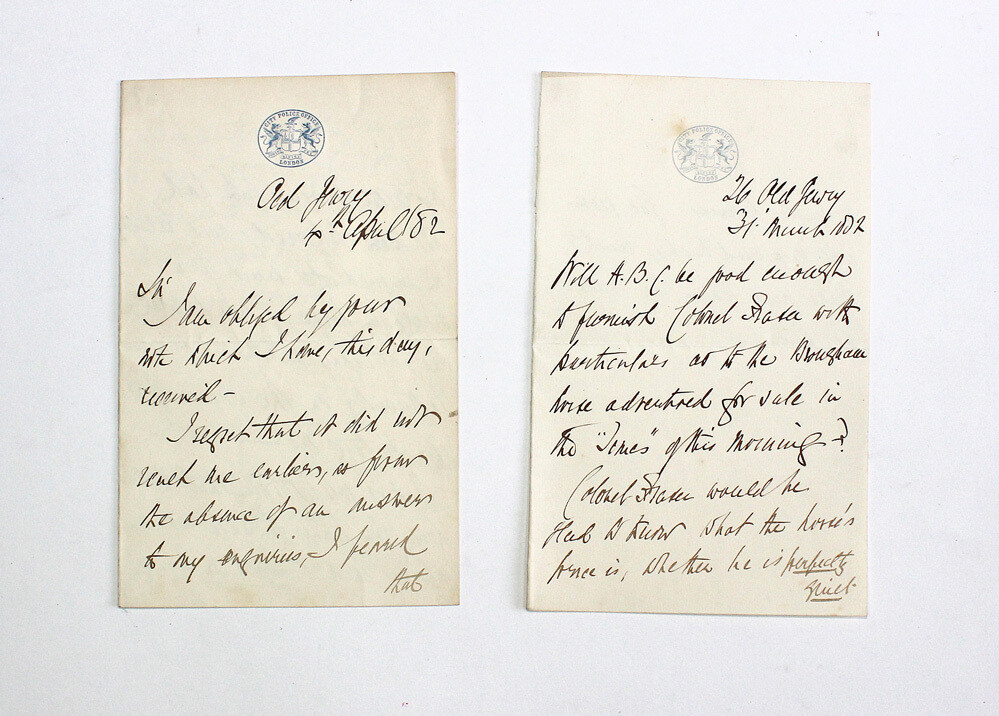 CITY POLICE OFFICE
LONDON
Old Jewry
4th April 82
Sir
I am obliged by your
note which I have, this day,
received –
I regret that it did not
reach me earlier, as from
the absence of an answer
to my enquiries, I feared
that
CITY POLICE OFFICE
LONDON
26 Old Jewry
31st March 1882
Will A.B.C. be good enough
to furnish Colonel Fraser with
particulars as to the Brougham
horse advertised for sale in
the "Times" of this morning –?
Colonel Fraser would be
glad to know what the horse's
price is, whether he is perfectly
quiet